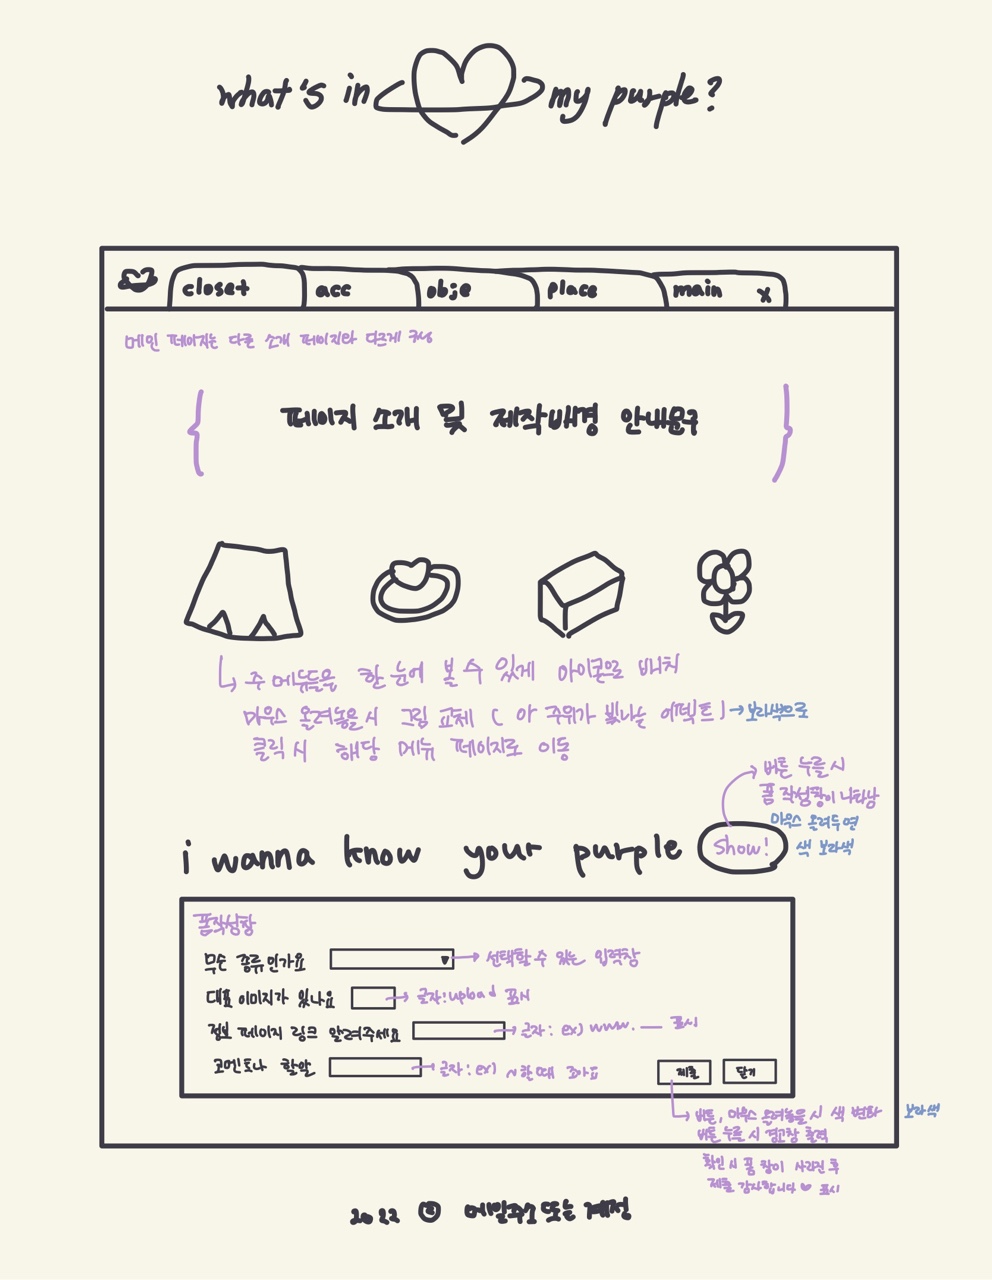 what's in my purple?
closet acc obje place main x
메인 페이지는 다른 소개 페이지와 다르게 구성
{ 페이지 소개 및 제작배경 안내문구 }
주 메뉴들을 한 눈에 볼 수 있게 아이콘으로 배치
마우스 올려놓을 시 그림 교체 ( or 주위가 빛나는 이펙트) → 보라색으로
클릭 시 해당 메뉴 페이지로 이동
버튼 누를 시
폼 작성창이 나타남
마우스 올려두면
색 보라색
i wanna know your purple show!
폼작성창
무슨 종류인가요 → 선택할 수 있는 입력창
대표 이미지가 있나요 → 글자: upload 표시
정보 페이지 링크 알려주세요 → 글자: ex) www. — 표시
코멘트나 할말 → 글자: ex) ~한때 좋아요
제출 닫기
버튼, 마우스 올려놓을 시 색 변화 보라색
버튼 누를 시 경고창 출력
확인 시 폼 창이 사라진 후
제출 감사합니다 ♥ 표시
2022 메일주소 또는 계정